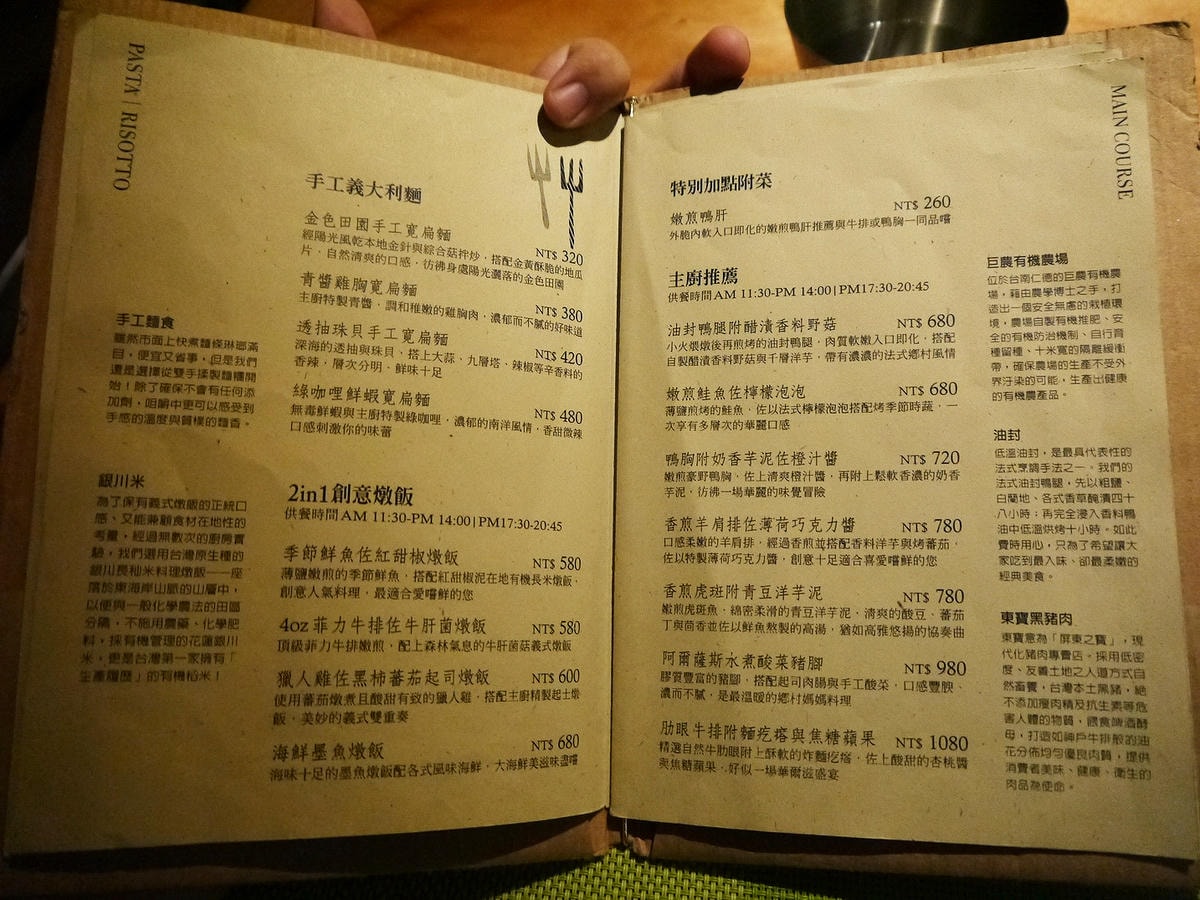 PASTA | RISOTTO
手工義大利麵
金色田園手工寬扁麵
NT$ 320
經陽光風乾本地金針與綜合菇拌炒，搭配金黃酥脆的地瓜
片，自然清爽的口感，彷彿身處陽光灑落的金色田園
青醬雞胸寬扁麵
NT$ 380
主廚特製青醬，調和稚嫩的雞胸肉，濃郁而不膩的好味道
透抽珠貝手工寬扁麵
NT$ 420
深海的透抽與珠貝，搭上大蒜、九層塔、辣椒等辛香料的
香辣，層次分明，鮮味十足
綠咖哩鮮蝦寬扁麵
NT$ 480
無毒鮮蝦與主廚特製綠咖哩，濃郁的南洋風情，香甜微辣
口感刺激你的味蕾
2in1創意燉飯
供餐時間 AM 11:30-PM 14:00 | PM17:30-20:45
季節鮮魚佐紅甜椒燉飯
NT$ 580
薄鹽嫩煎的季節鮮魚，搭配紅甜椒泥在地有機長米燉飯，
創意人氣料理，最適合愛嚐鮮的您
4oz 菲力牛排佐牛肝菌燉飯
NT$ 580
頂級菲力牛排嫩煎，配上森林氣息的牛肝菌菇義式燉飯
獵人雞佐黑柿蕃茄起司燉飯
NT$ 600
使用蕃茄燉煮且酸甜有致的獵人雞，搭配主廚精製起士燉
飯，美妙的義式雙重奏
海鮮墨魚燉飯
NT$ 680
海味十足的墨魚燉飯配各式風味海鮮，大海鮮美滋味盡嚐
手工麵食
雖然市面上快煮麵條琳瑯滿
目，便宜又省事，但是我們
還是選擇從雙手揉製麵糰開
始！除了確保不會有任何添
加劑，咀嚼中更可以感受到
手感的溫度與質樸的麵香。
銀川米
為了保有義式燉飯的正統口
感、又能兼顧食材在地性的
考量，經過無數次的廚房實
驗，我們選用台灣原生種的
銀川長秈米料理燉飯——座
落於東海岸山脈的山層中，
以便與一般化學農法的田區
分隔，不施用農藥、化學肥
料，採有機管理的花蓮銀川
米，更是台灣第一家擁有「
生產履歷」的有機稻米！
MAIN COURSE
特別加點附菜
嫩煎鴨肝
NT$ 260
外脆內軟入口即化的嫩煎鴨肝推薦與牛排或鴨胸一同品嚐
主廚推薦
供餐時間 AM 11:30-PM 14:00 | PM17:30-20:45
油封鴨腿附醋漬香料野菇
NT$ 680
小火煨燉後再煎烤的油封鴨腿，肉質軟嫩入口即化，搭配
自製醋漬香料野菇與千層洋芋，帶有濃濃的法式鄉村風情
嫩煎鮭魚佐檸檬泡泡
NT$ 680
薄鹽煎烤的鮭魚，佐以法式檸檬泡泡搭配烤季節時蔬，一
次享有多層次的華麗口感
鴨胸附奶香芋泥佐橙汁醬
NT$ 720
嫩煎豪野鴨胸，佐上清爽橙汁醬，再附上鬆軟香濃的奶香
芋泥，彷彿一場華麗的味覺冒險
香煎羊肩排佐薄荷巧克力醬
NT$ 780
口感柔嫩的羊肩排，經過香煎並搭配香料洋芋與烤蕃茄，
佐以特製薄荷巧克力醬，創意十足適合喜愛嚐鮮的您
香煎虎斑附青豆洋芋泥
NT$ 780
嫩煎虎斑魚，綿密柔滑的青豆洋芋泥，清爽的酸豆、蕃茄
丁與茴香並佐以鮮魚熬製的高湯，猶如高雅悠揚的協奏曲
阿爾薩斯水煮酸菜豬腳
NT$ 980
膠質豐富的豬腳，搭配起司肉腸與手工酸菜，口感豐腴、
濃而不膩，是最溫暖的鄉村媽媽料理
肋眼牛排附麵疙瘩與焦糖蘋果
NT$ 1080
精選自然牛肋眼附上酥軟的炸麵疙瘩，佐上酸甜的杏桃醬
與焦糖蘋果，好似一場華爾滋盛宴
巨農有機農場
位於台南仁德的巨農有機農
場，藉由農學博士之手，打
造出一個安全無慮的栽植環
境，農場自製有機推肥、安
全的有機防治機制、自行育
種留種、十米寬的隔離緩衝
帶，確保農場的生產不受外
界汙染的可能，生產出健康
的有機農產品。
油封
低溫油封，是最具代表性的
法式烹調手法之一。我們的
法式油封鴨腿，先以粗鹽、
白蘭地、各式香草醃漬四十
八小時；再完全浸入香料鴨
油中低溫烘烤十小時。如此
費時用心，只為了希望讓大
家吃到最入味、卻最柔嫩的
經典美食。
東寶黑豬肉
東寶意為「屏東之寶」，現
代化豬肉專賣店。採用低密
度、友善土地之人道方式自
然畜養，台灣本土黑豬，絕
不添加瘦肉精及抗生素等危
害人體的物質，餵食啤酒酵
母，打造如神戶牛排般的油
花分佈均勻優良肉質，提供
消費者美味、健康、衛生的
肉品為使命。